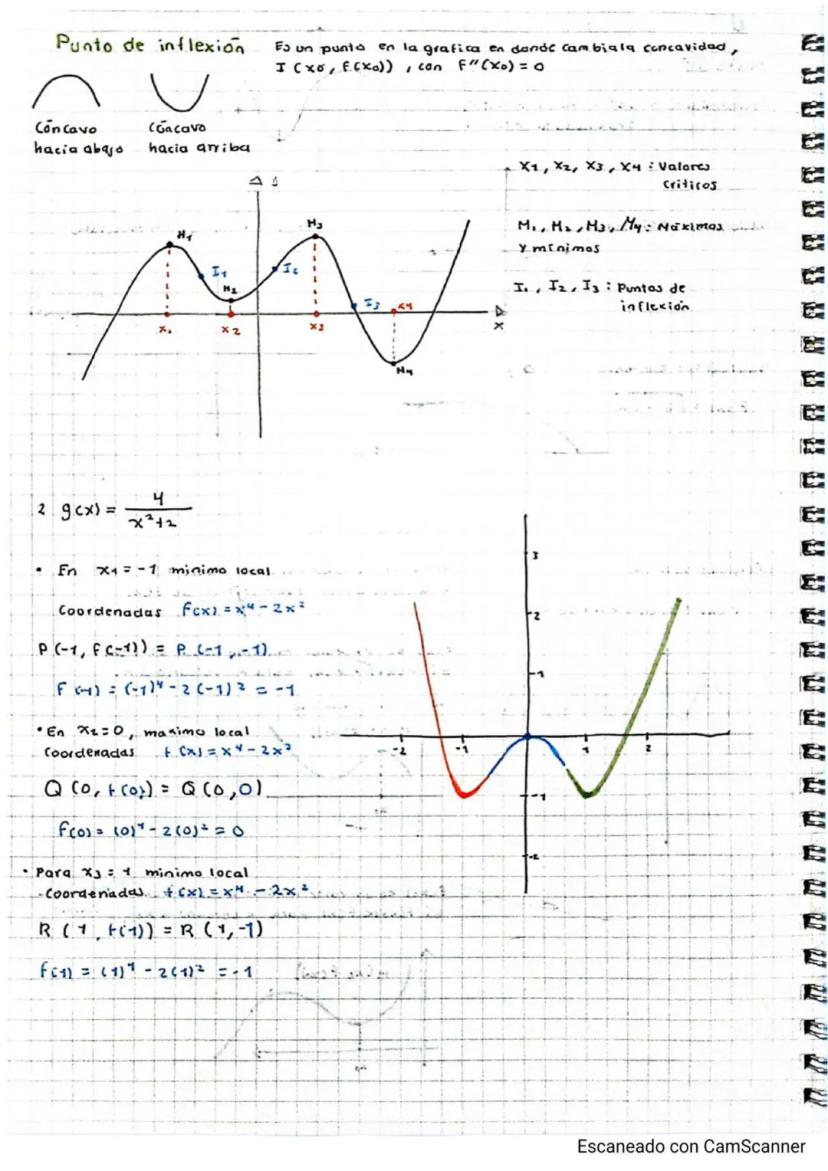 Punto de inflexión
Es un punto en la grafica en donde cambia la concavidad,
I (x0, f(x0)), con f''(x0) = 0
Cóncavo
hacia abajo
Cóacavo
hacia arriba
x1, x2, x3, x4 : Valores
Criticos
M1, M2, M3, M4 : Máximos
y mínimos
I1, I2, I3 : Puntos de
inflexión
M1
I1
M2
I2
M3
I3
M4
x1
x2
x3
x4
x
2 g(x) = 4 / x²+2
• En x1 = -1 minimo local
Coordenadas f(x) = x⁴ - 2x²
P(-1, f(-1)) = P (-1, -1)
F(-1) = (-1)⁴ - 2(-1)² = -1
• En x2 = 0, maximo local
Coordenadas f(x) = x⁴ - 2x²
Q (0, f(0)) = Q (0,0)
f(0) = (0)⁴ - 2(0)² = 0
• Para x3 = 1 minimo local
-Coordenadas f(x) = x⁴ - 2x²
R (1, f(1)) = R (1,-1)
f(1) = (1)⁴ - 2(1)² = -1
3
2
1
-2
-1
1
2
-1
-2
Escaneado con CamScanner